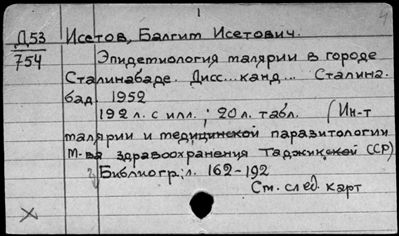 1
4
Д53 Исетов, Балгит Исетович.
754
Эпидетиология талярии в городе
Сталинабаде. Дисс... канд... Сталина-
бад. 1952
192 л. с илл. ; 20 л. табл. (Ин-т
талярии и медицинской паразитологии
М-ва здравоохранения Таджикской ССР)
Библиогр: л. 162-192
См. след. карт